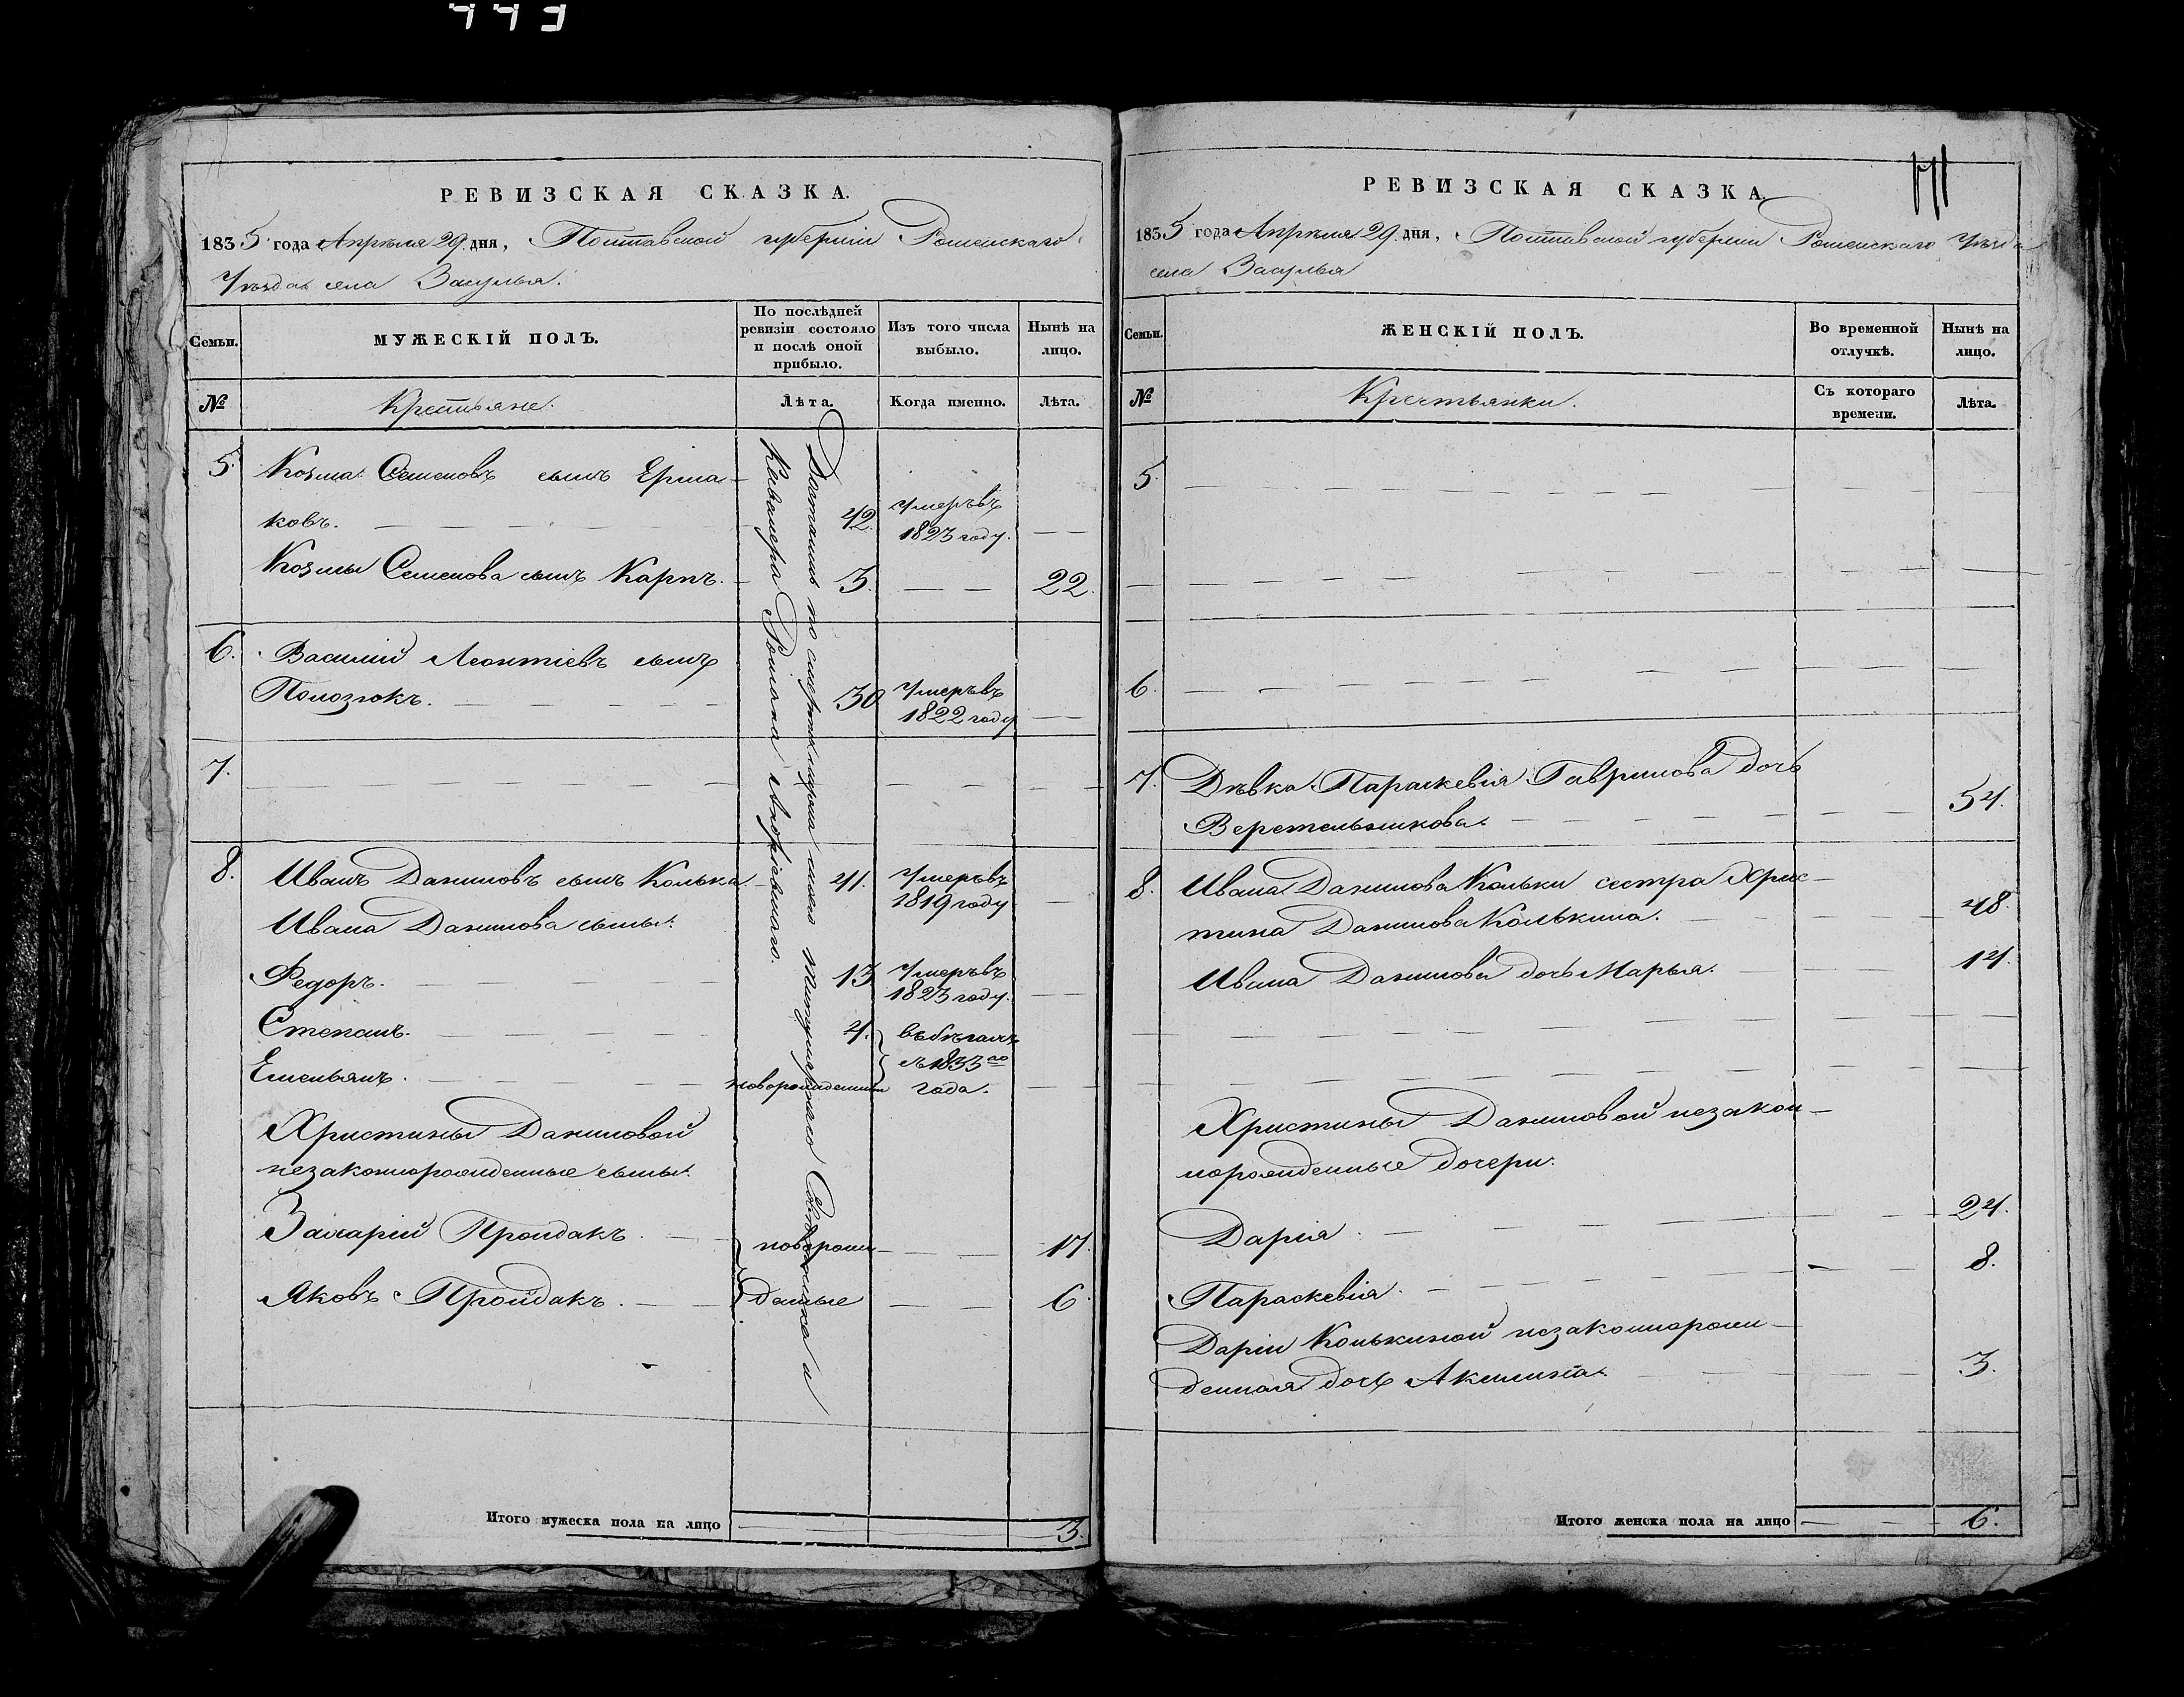 443
РЕВИЗСКАЯ СКАЗКА.
1835 года Апрѣля 29 дня, Полтавской губерніи Роменскаго
Уѣзда села Засулья.
Семьи.
МУЖЕСКІЙ ПОЛЪ.
По послѣдней
ревизіи состояло
и послѣ оной
прибыло.
Изъ того числа
выбыло.
Нынѣ на
лицо.
№
Крестьяне.
Лѣта.
Когда именно.
Лѣта.
5. Козма Семеновъ сынъ Ерма-
ковъ. 42. умеръ въ
1823 году.
Козмы Семенова сынъ Карпъ. 3. 22.
6. Василий Леонтіевъ сынъ
Полозюкъ. 30 умеръ въ
1822 году
7.
8. Иванъ Даниловъ сынъ Колька 41. умеръ въ
1819 году
Ивана Данилова сыны.
Федоръ. 13 умеръ въ
1823 году.
Степанъ. 4. въ бѣгахъ
съ 1833го
Емельянъ. новорожденный года.
Христины Даниловой
незаконнорожденные сыны.
Захарій Пройдакъ. новорож- 17.
Яковъ Пройдакъ. денные 6.
Достались по смерти мужа моего титулярнаго Совѣтника и
Кавалера Романа
Итого мужеска пола на лицо 3.
РЕВИЗСКАЯ СКАЗКА.
1835 года Апрѣля 29 дня, Полтавской губерніи Роменскаго Уѣзда
села Засулья
Семьи.
ЖЕНСКІЙ ПОЛЪ.
Во временной
отлучкѣ.
Нынѣ на
лицо.
№
Крестьянки.
Съ котораго
времени.
Лѣта.
5.
6.
7. Дѣвка Параскевія Гаврилова дочь
Веретельникова. 54.
8. Ивана Данилова Кольки сестра Хрис-
тина Данилова Колькина. 48.
Ивана Данилова дочь Марья. 14.
Христины Даниловой незакон-
норожденные дочери.
Дарія. 24.
Параскевія. 8.
Даріи Колькиной незаконнорож-
денная дочь Акилина. 3.
Итого женска пола на лицо 6.